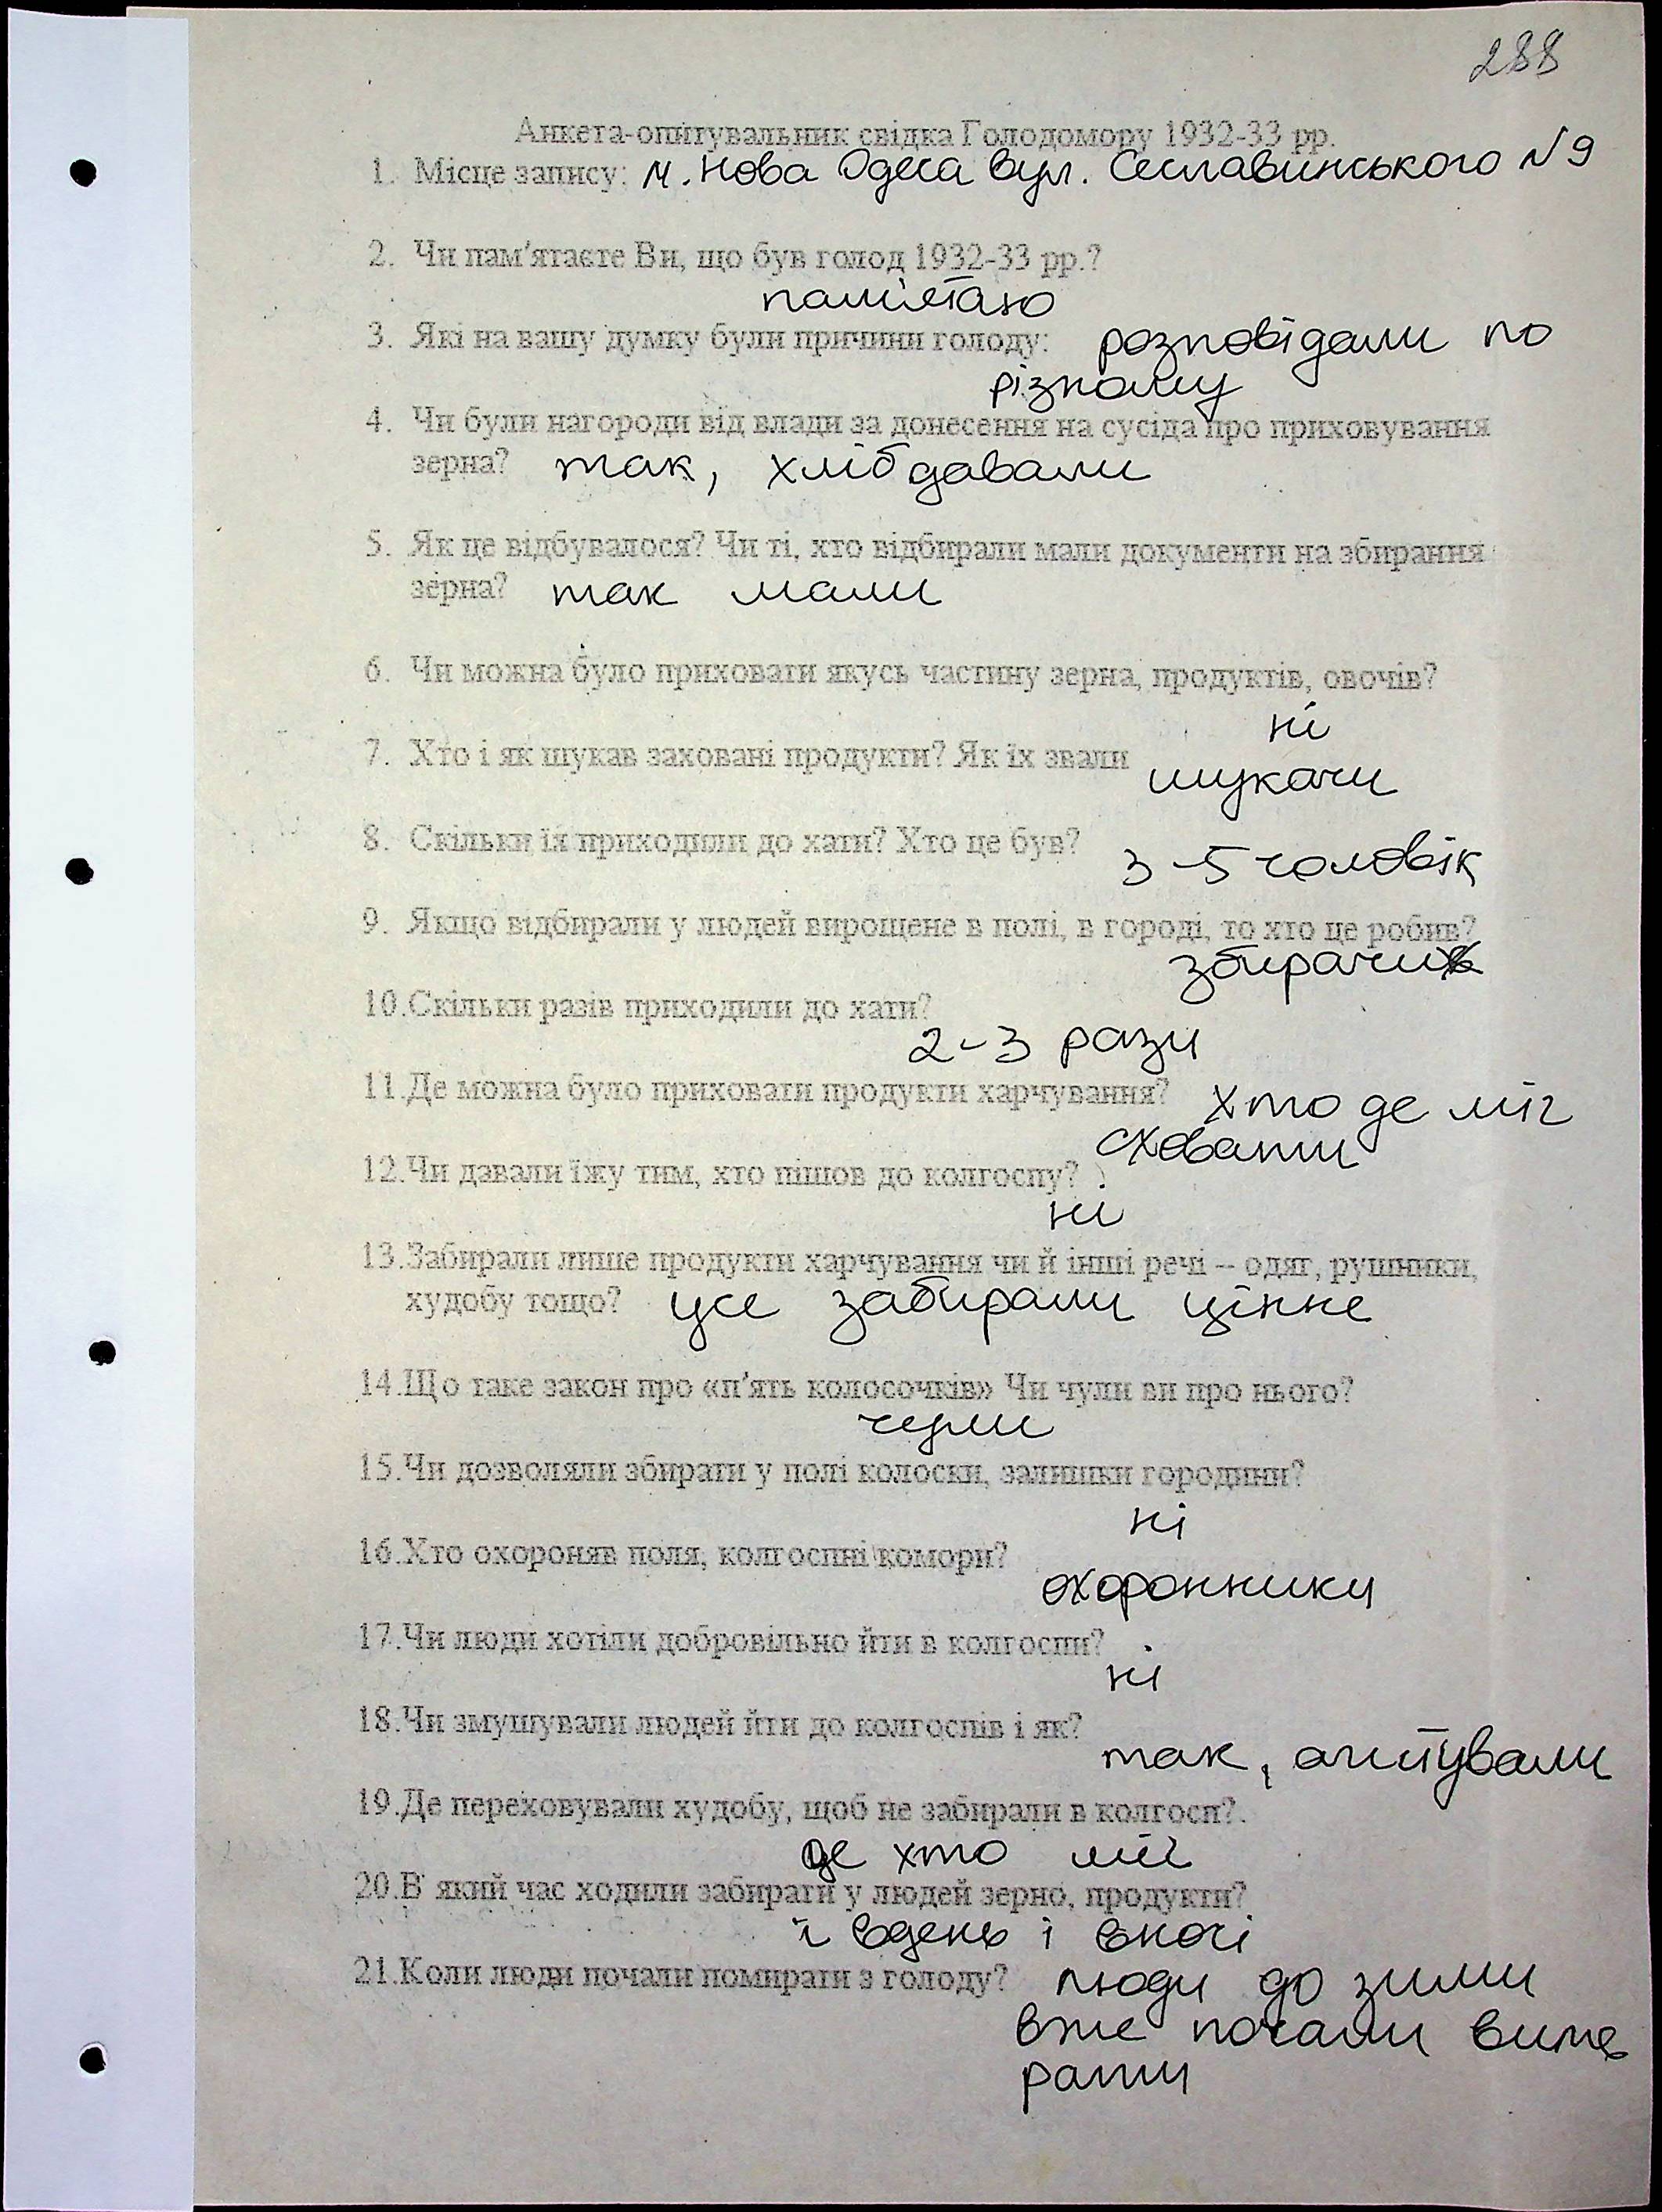 288
Анкета-опитувальник свідка Голодомору 1932-33 рр.
1. Місце запису: м. Нова Одеса вул. Сеславинського №9
2. Чи пам'ятаєте Ви, що був голод 1932-33 рр.?
пам'ятаю
3. Які на вашу думку були причини голоду: розповідали по
різному
4. Чи були нагороди від влади за донесення на сусіда про приховування
зерна? так, хліб давали
5. Як це відбувалося? Чи ті, хто відбирали мали документи на збирання
зерна? так мали
6. Чи можна було приховати якусь частину зерна, продуктів, овочів?
ні
7. Хто і як шукав заховані продукти? Як їх звали шукачи
8. Скільки їх приходили до хати? Хто це був? 3-5 чоловік
9. Якщо відбирали у людей вирощене в полі, в городі, то хто це робив?
збирачи
10.Скільки разів приходили до хати?
2-3 рази
11.Де можна було приховати продукти харчування? хто де міг
сховати
12.Чи давали їжу тим, хто пішов до колгоспу?
ні
13.Забирали лише продукти харчування чи й інші речі – одяг, рушники,
худобу тощо? усе забирали цінне
14.Що таке закон про «п'ять колосочків» Чи чули ви про нього?
чули
15.Чи дозволяли збирати у полі колоски, залишки городини?
ні
16.Хто охороняв поля, колгоспні комори?
охоронники
17.Чи люди хотіли добровільно йти в колгоспи?
ні
18.Чи змушували людей йти до колгоспів і як?
так, агітували
19.Де переховували худобу, щоб не забирали в колгосп?.
де хто міг
20.В який час ходили забирати у людей зерно, продукти?
і вдень і вночі
21.Коли люди почали помирати з голоду? люди до зими
вже почали виме
рати